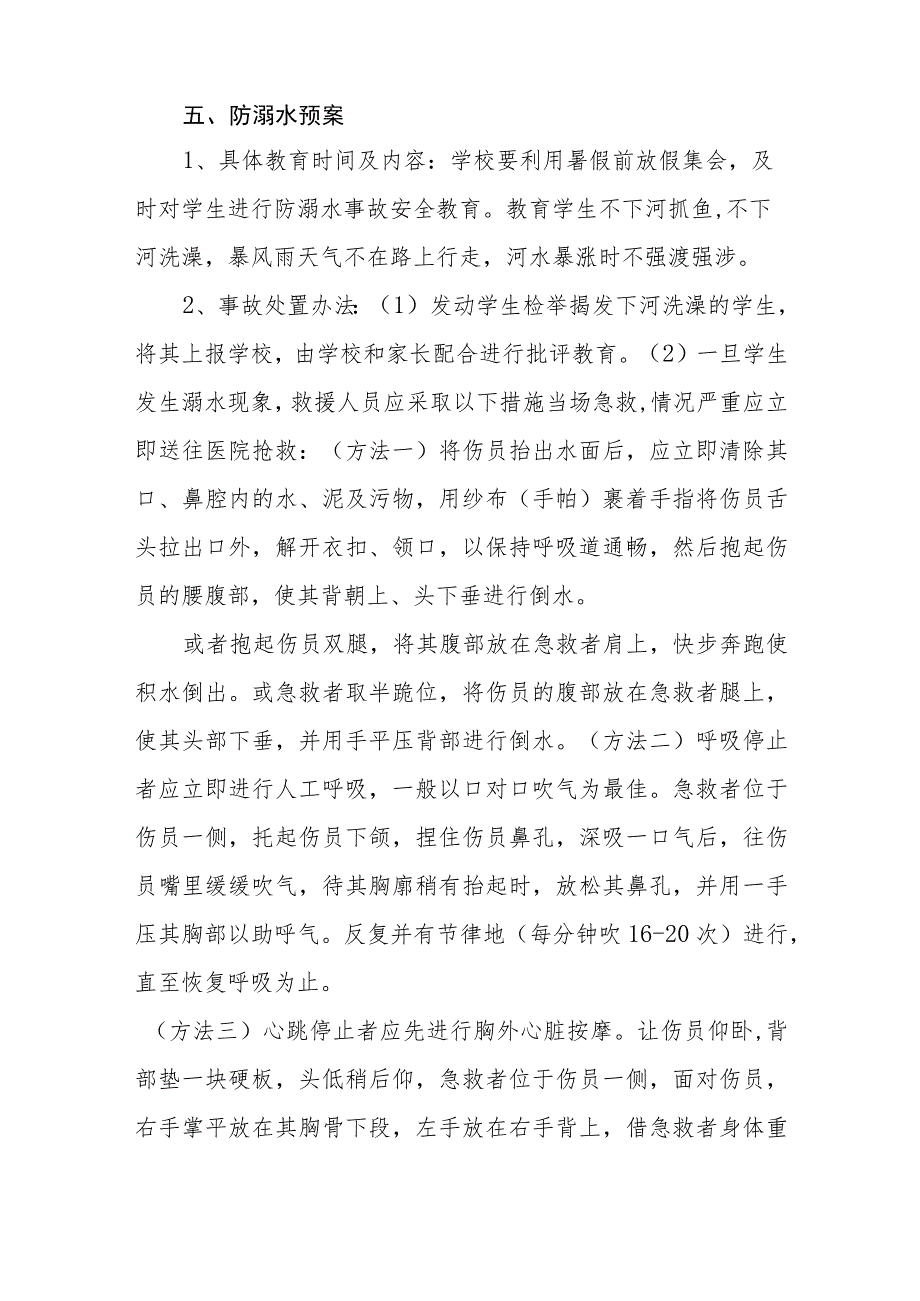 五、防溺水预案
1、具体教育时间及内容：学校要利用暑假前放假集会，及
时对学生进行防溺水事故安全教育。教育学生不下河抓鱼,不下
河洗澡，暴风雨天气不在路上行走，河水暴涨时不强渡强涉。
2、事故处置办法：（1）发动学生检举揭发下河洗澡的学生，
将其上报学校，由学校和家长配合进行批评教育。（2）一旦学生
发生溺水现象，救援人员应采取以下措施当场急救,情况严重应立
即送往医院抢救：（方法一）将伤员抬出水面后，应立即清除其
口、鼻腔内的水、泥及污物，用纱布（手帕）裹着手指将伤员舌
头拉出口外，解开衣扣、领口，以保持呼吸道通畅，然后抱起伤
员的腰腹部，使其背朝上、头下垂进行倒水。
或者抱起伤员双腿，将其腹部放在急救者肩上，快步奔跑使
积水倒出。或急救者取半跪位，将伤员的腹部放在急救者腿上，
使其头部下垂，并用手平压背部进行倒水。（方法二）呼吸停止
者应立即进行人工呼吸，一般以口对口吹气为最佳。急救者位于
伤员一侧，托起伤员下颌，捏住伤员鼻孔，深吸一口气后，往伤
员嘴里缓缓吹气，待其胸廓稍有抬起时，放松其鼻孔，并用一手
压其胸部以助呼气。反复并有节律地（每分钟吹16-20次）进行，
直至恢复呼吸为止。
（方法三）心跳停止者应先进行胸外心脏按摩。让伤员仰卧,背
部垫一块硬板，头低稍后仰，急救者位于伤员一侧，面对伤员，
右手掌平放在其胸骨下段，左手放在右手背上，借急救者身体重